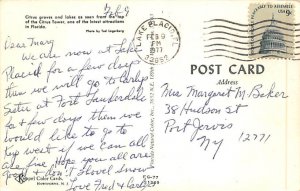 Citrus groves and lakes as seen from the top
of the Citrus Tower, one of the latest attractions
in Florida.
Photo by Ted Lagerberg
Feb 8
Dear Mary
We are now at Lake
Placid for a few days
then we will go to Carls
Sister at Fort Lauderdale
for a few days then we
would like to go to
Key West if we can all
are fine Hope you all are
good & don't Shovel Snow
Love Fred & Carl
Koppel Color Cards
Hawthorne, N. J.
LAKE PLACID, FL
FEB 9
PM
1977
33852
9c
POST CARD
Address
Mrs Margaret M. Baker
38 Hudson St
Port Jervis
NY 12771